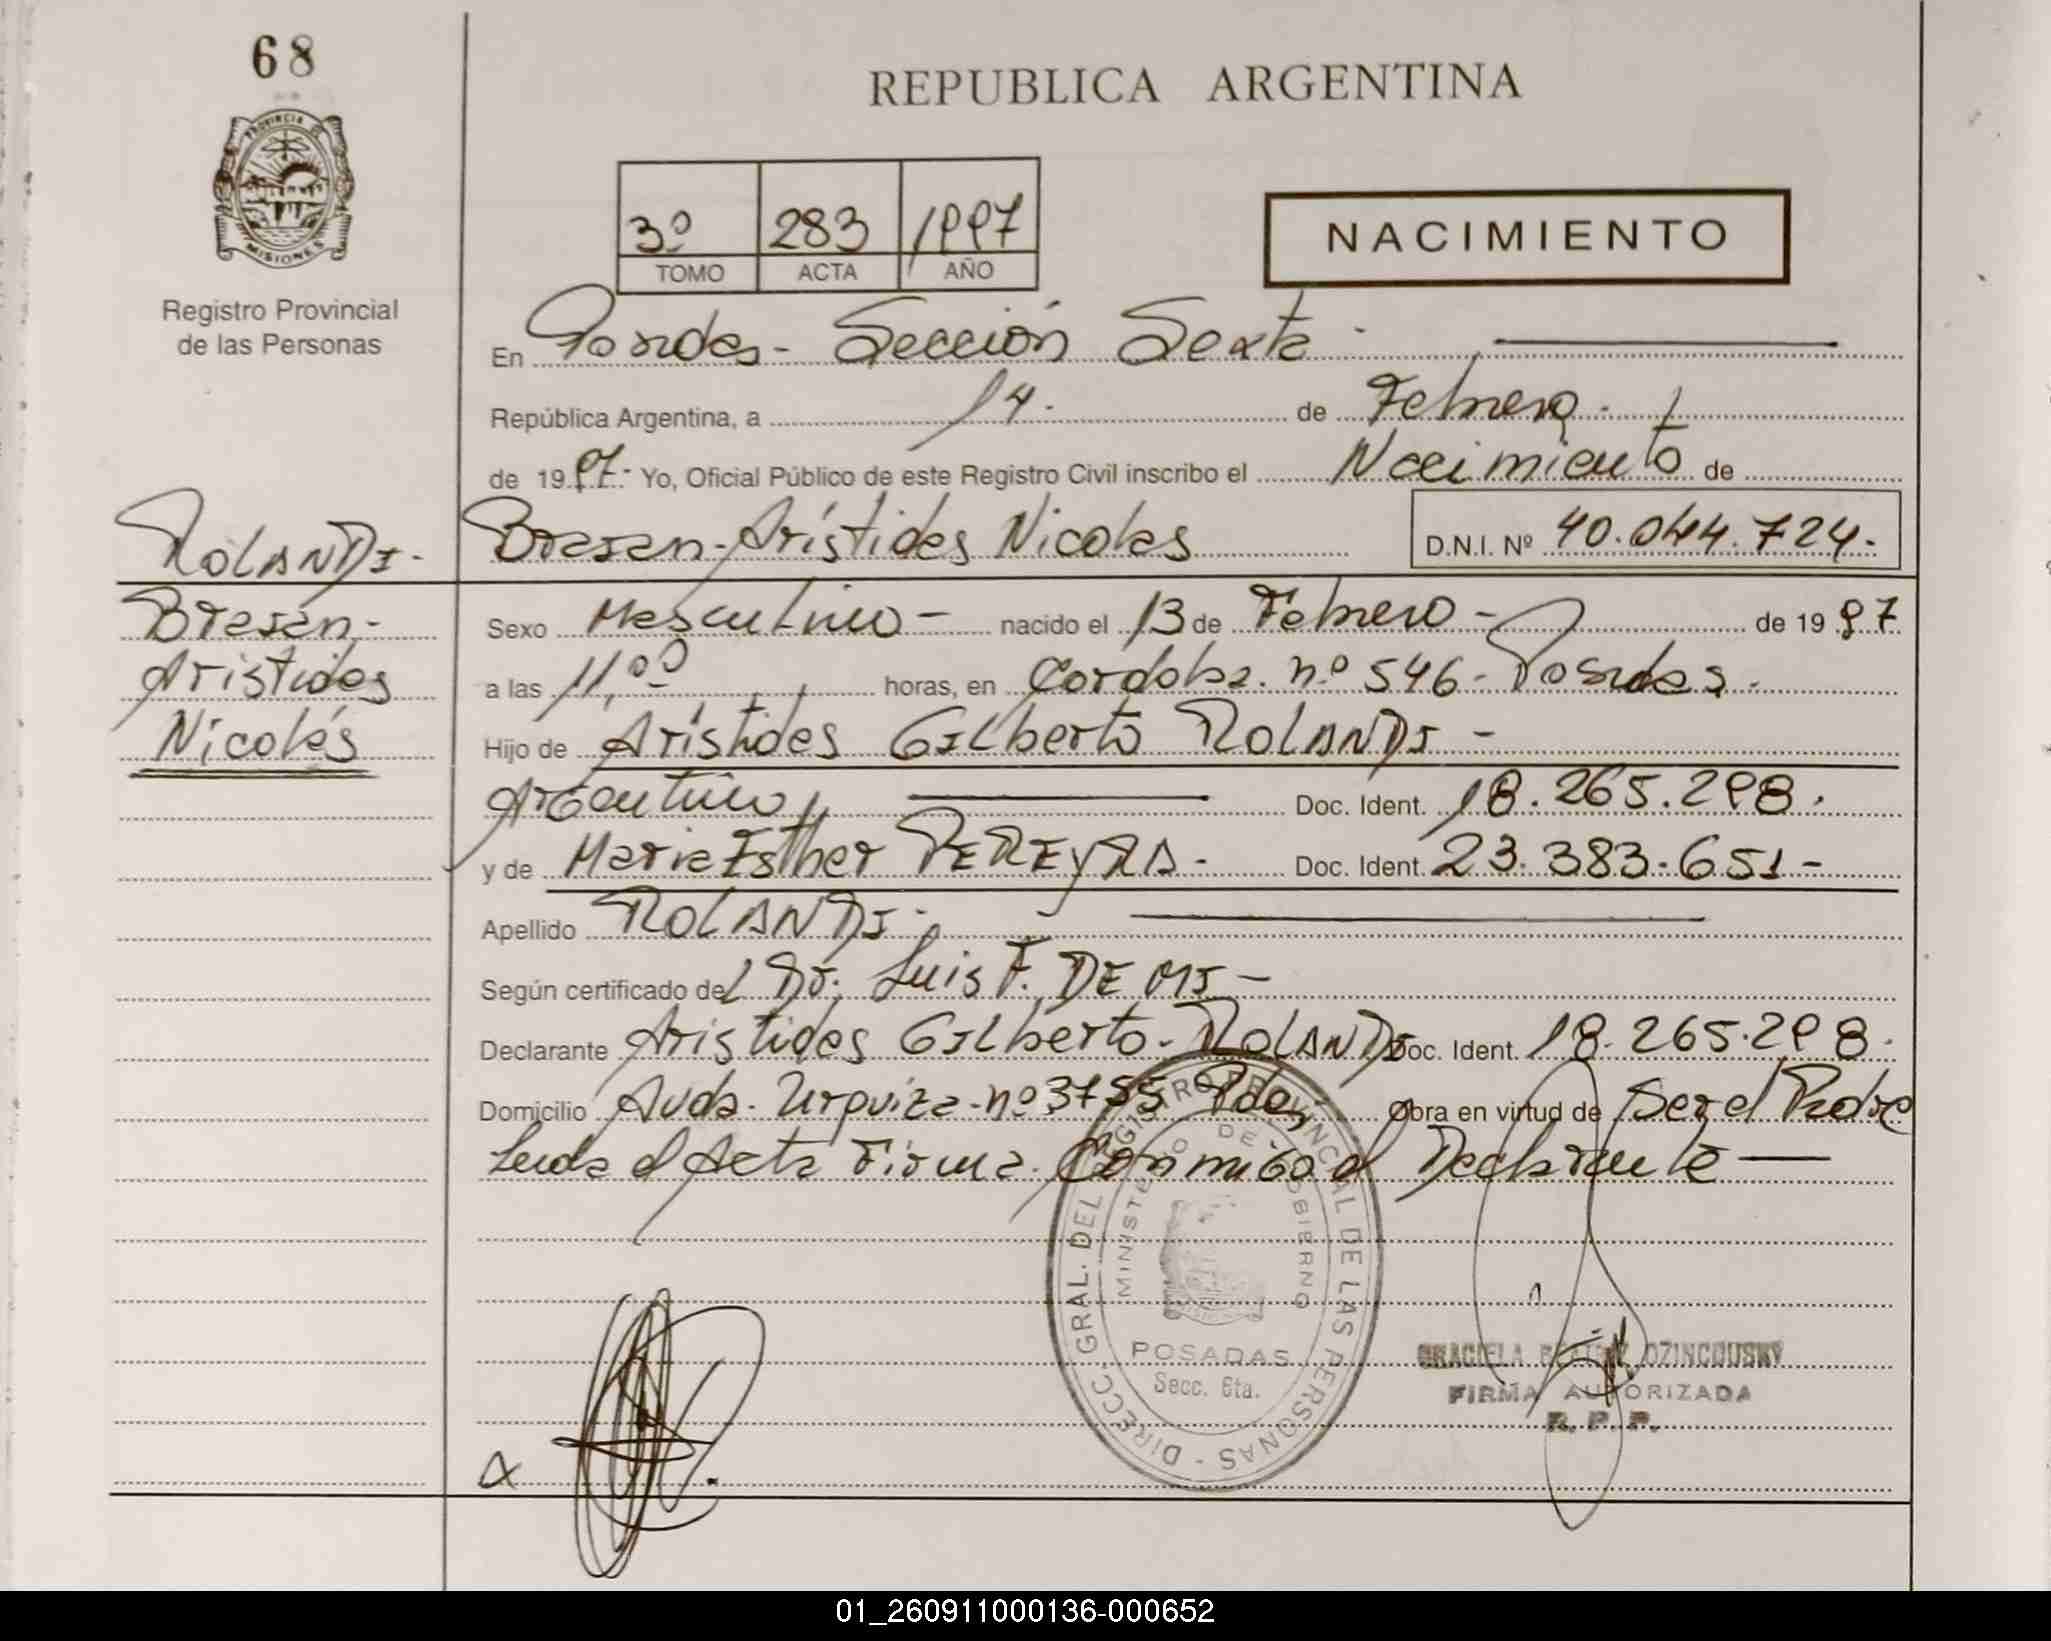 68
PROVINCIA DE
MISIONES
Registro Provincial
de las Personas
REPUBLICA ARGENTINA
3º 283 1997
TOMO ACTA AÑO
NACIMIENTO
En Posadas - Sección Sexta -
República Argentina, a 14. de Febrero.
de 1997.- Yo, Oficial Público de este Registro Civil inscribo el Nacimiento de
ROLANDI.- Braian Arístides Nicolas D.N.I. Nº 40.044.724.-
Braian.- Sexo Masculino - nacido el 13 de Febrero - de 1997
Aristides a las 11,00 horas, en Cordoba. nº 546 - Posadas.
Nicolás Hijo de Arístides Gilberto ROLANDI -
Argentino Doc. Ident. 18.265.298.
y de Maria Esther PEREYRA.- Doc. Ident. 23.383.651-
Apellido ROLANDI.-
Según certificado del Dr. Luis F. DE MI -
Declarante Aristides Gilberto. ROLANDI Doc. Ident. 18.265.298.
Domicilio Avda. Urquiza. nº 3755 Pdas. Obra en virtud de Ser el Padre
Leida el Acta Firma Conmigo el Declarante
DIRECC. GRAL. DEL REGISTRO PROVINCIAL DE LAS PERSONAS -
MINISTERIO DE GOBIERNO
POSADAS
Secc. 6ta.
GRACIELA BEATRIZ
FIRMA AUTORIZADA
R. P. P.
01_260911000136-000652